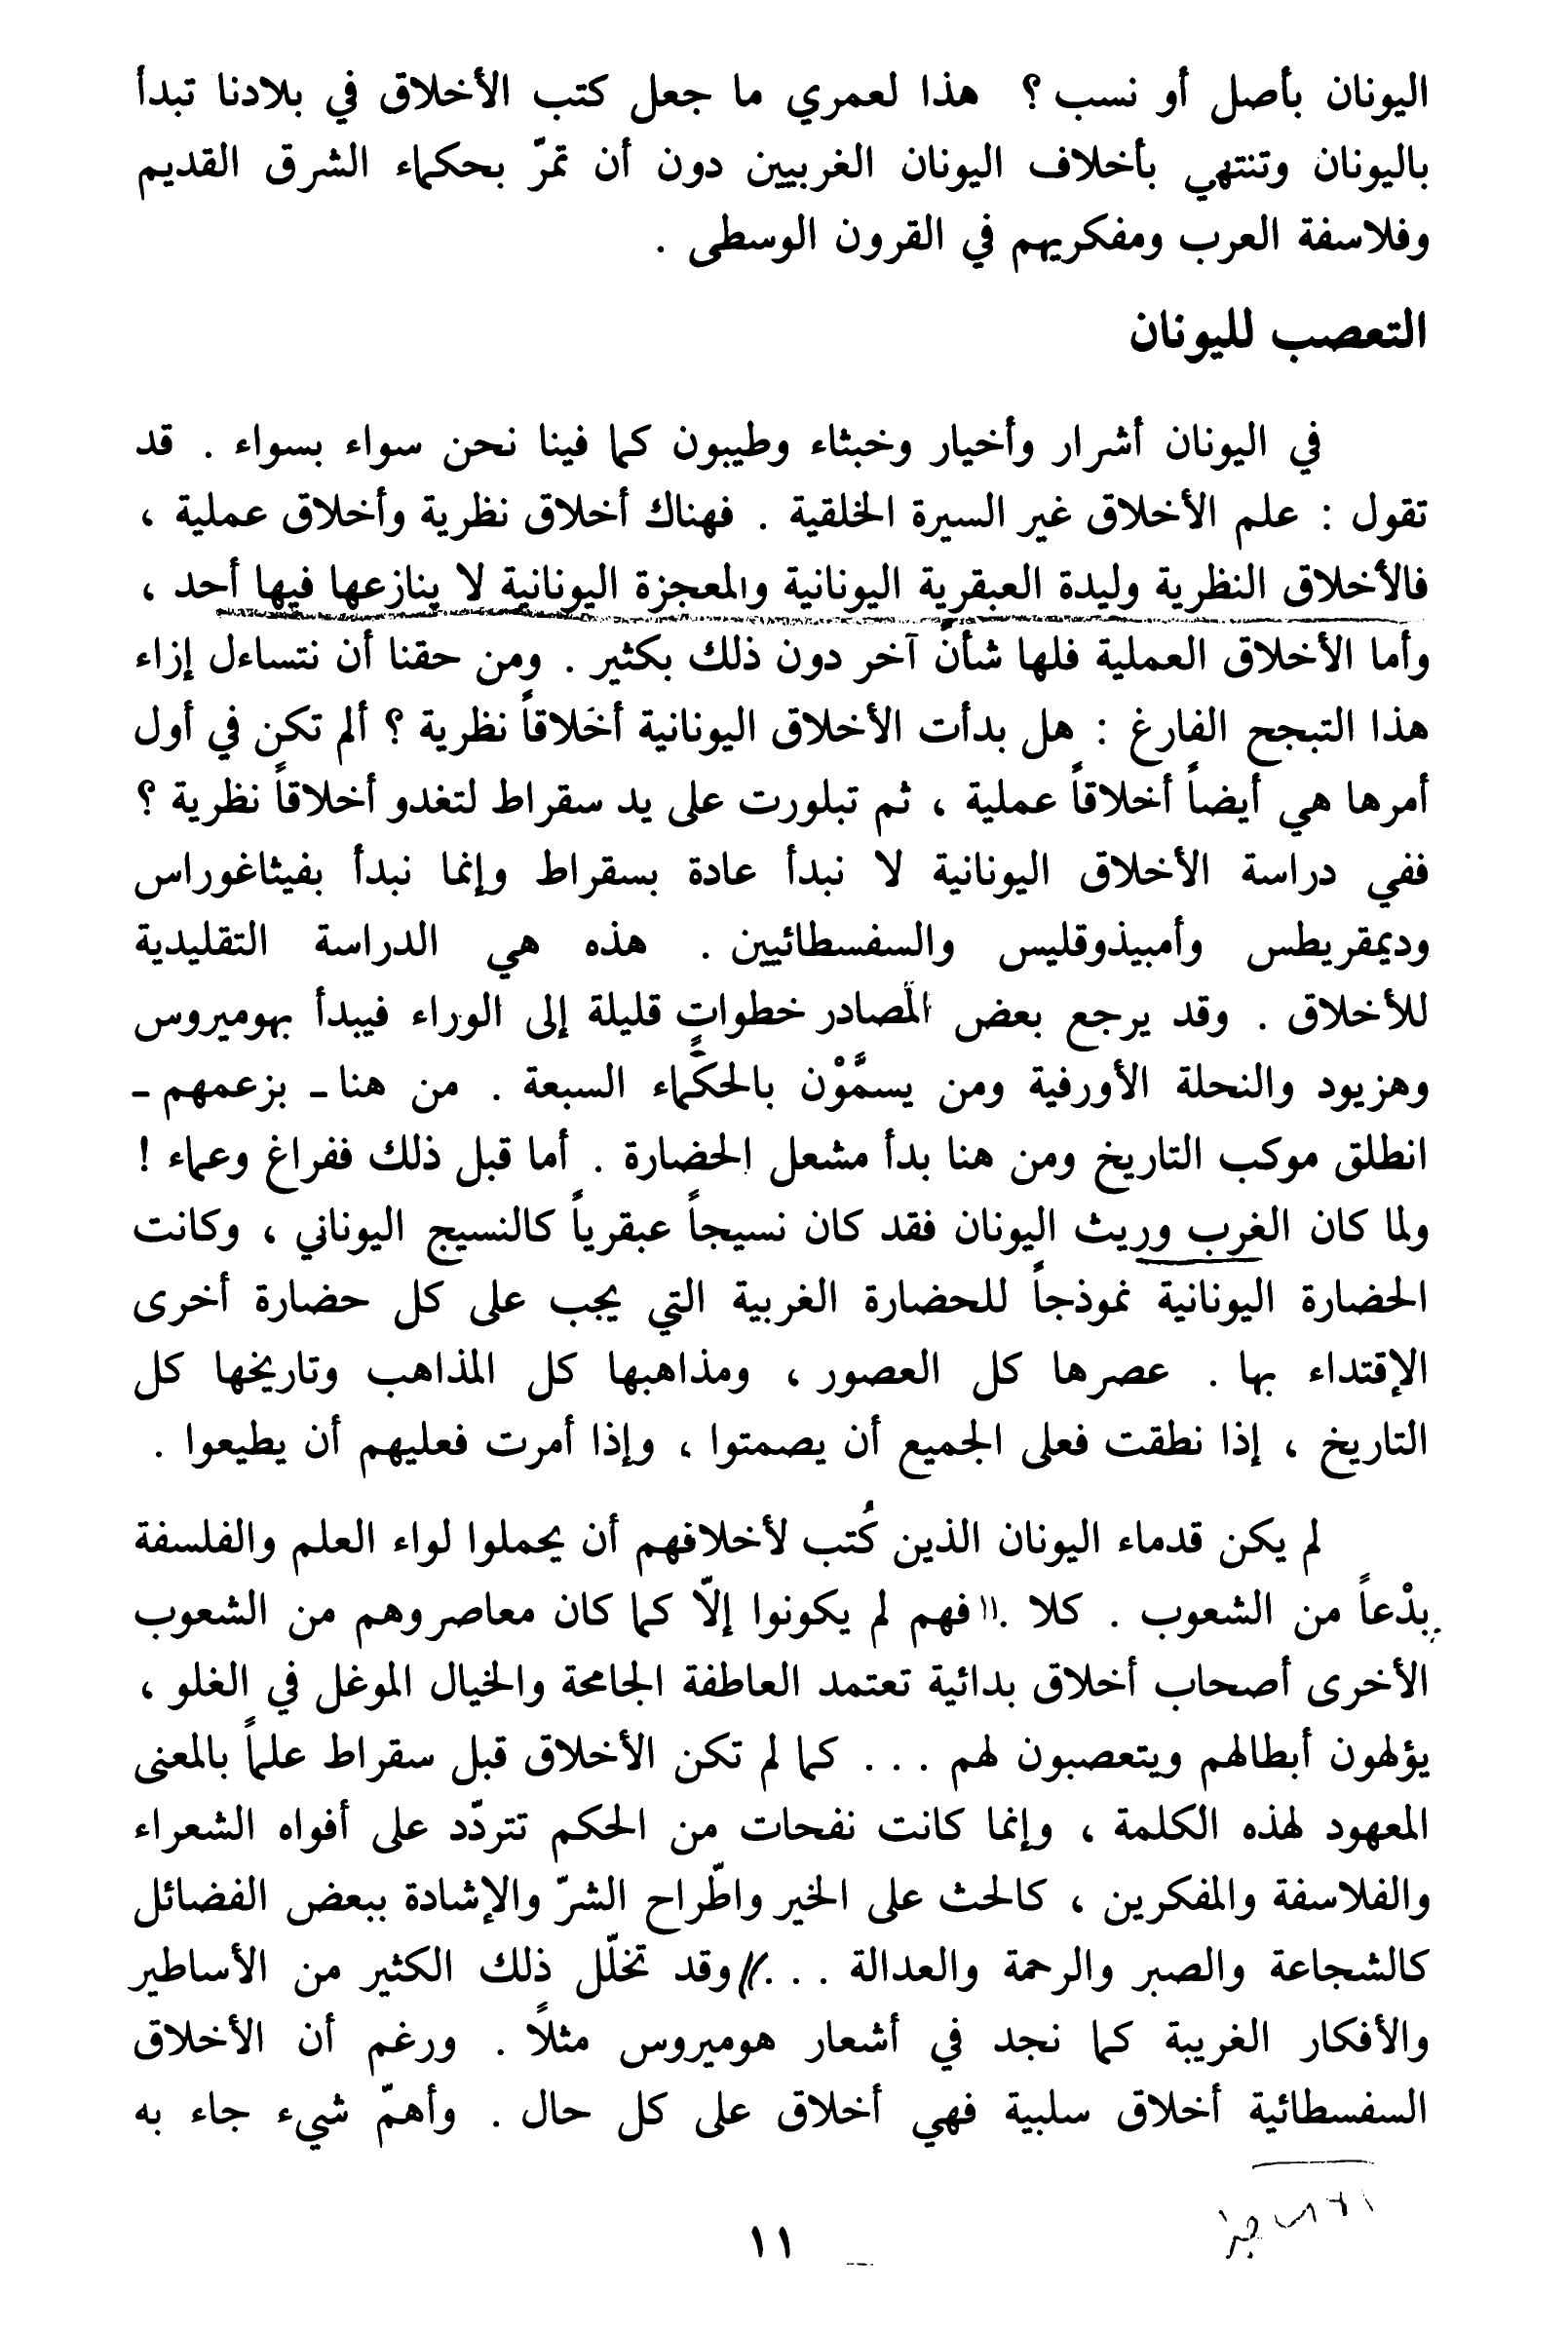 اليونان بأصل أو نسب ؟ هذا لعمري ما جعل كتب الأخلاق في بلادنا تبدأ
باليونان وتنتهي بأخلاف اليونان الغربيين دون أن تمرّ بحكماء الشرق القديم
وفلاسفة العرب ومفكريهم في القرون الوسطى .
التعصب لليونان
في اليونان أشرار وأخيار وخبثاء وطيبون كما فينا نحن سواء بسواء . قد
تقول : علم الأخلاق غير السيرة الخلقية . فهناك أخلاق نظرية وأخلاق عملية ،
فالأخلاق النظرية وليدة العبقرية اليونانية والمعجزة اليونانية لا ينازعها فيها أحد ،
وأما الأخلاق العملية فلها شأن آخر دون ذلك بكثير . ومن حقنا أن نتساءل إزاء
هذا التبجح الفارغ : هل بدأت الأخلاق اليونانية أخلاقاً نظرية ؟ ألم تكن في أول
أمرها هي أيضاً أخلاقاً عملية ، ثم تبلورت على يد سقراط لتغدو أخلاقاً نظرية ؟
ففي دراسة الأخلاق اليونانية لا نبدأ عادة بسقراط وإنما نبدأ بفيثاغوراس
وديمقريطس وأمبيذوقليس والسفسطائيين . هذه هي الدراسة التقليدية
للأخلاق . وقد يرجع بعض المصادر خطواتٍ قليلة إلى الوراء فيبدأ بهوميروس
وهزيود والنحلة الأورفية ومن يسمَّوْن بالحكماء السبعة . من هنا ـ بزعمهم ـ
انطلق موكب التاريخ ومن هنا بدأ مشعل الحضارة . أما قبل ذلك ففراغ وعماء !
ولما كان الغرب وريث اليونان فقد كان نسيجاً عبقرياً كالنسيج اليوناني ، وكانت
الحضارة اليونانية نموذجاً للحضارة الغربية التي يجب على كل حضارة أخرى
الإقتداء بها . عصرها كل العصور ، ومذاهبها كل المذاهب وتاريخها كل
التاريخ ، إذا نطقت فعلى الجميع أن يصمتوا ، وإذا أمرت فعليهم أن يطيعوا .
لم يكن قدماء اليونان الذين كُتب لأخلافهم أن يحملوا لواء العلم والفلسفة
بِدْعاً من الشعوب . كلا . فهم لم يكونوا إلاّ كما كان معاصروهم من الشعوب
الأخرى أصحاب أخلاق بدائية تعتمد العاطفة الجامحة والخيال الموغل في الغلو ،
يؤلهون أبطالهم ويتعصبون لهم . . . كما لم تكن الأخلاق قبل سقراط علماً بالمعنى
المعهود لهذه الكلمة ، وإنما كانت نفحات من الحكم تتردّد على أفواه الشعراء
والفلاسفة والمفكرين ، كالحث على الخير واطّراح الشرّ والإشادة ببعض الفضائل
كالشجاعة والصبر والرحمة والعدالة . . . وقد تخلّل ذلك الكثير من الأساطير
والأفكار الغريبة كما نجد في أشعار هوميروس مثلاً . ورغم أن الأخلاق
السفسطائية أخلاق سلبية فهي أخلاق على كل حال . وأهمّ شيء جاء به
١١